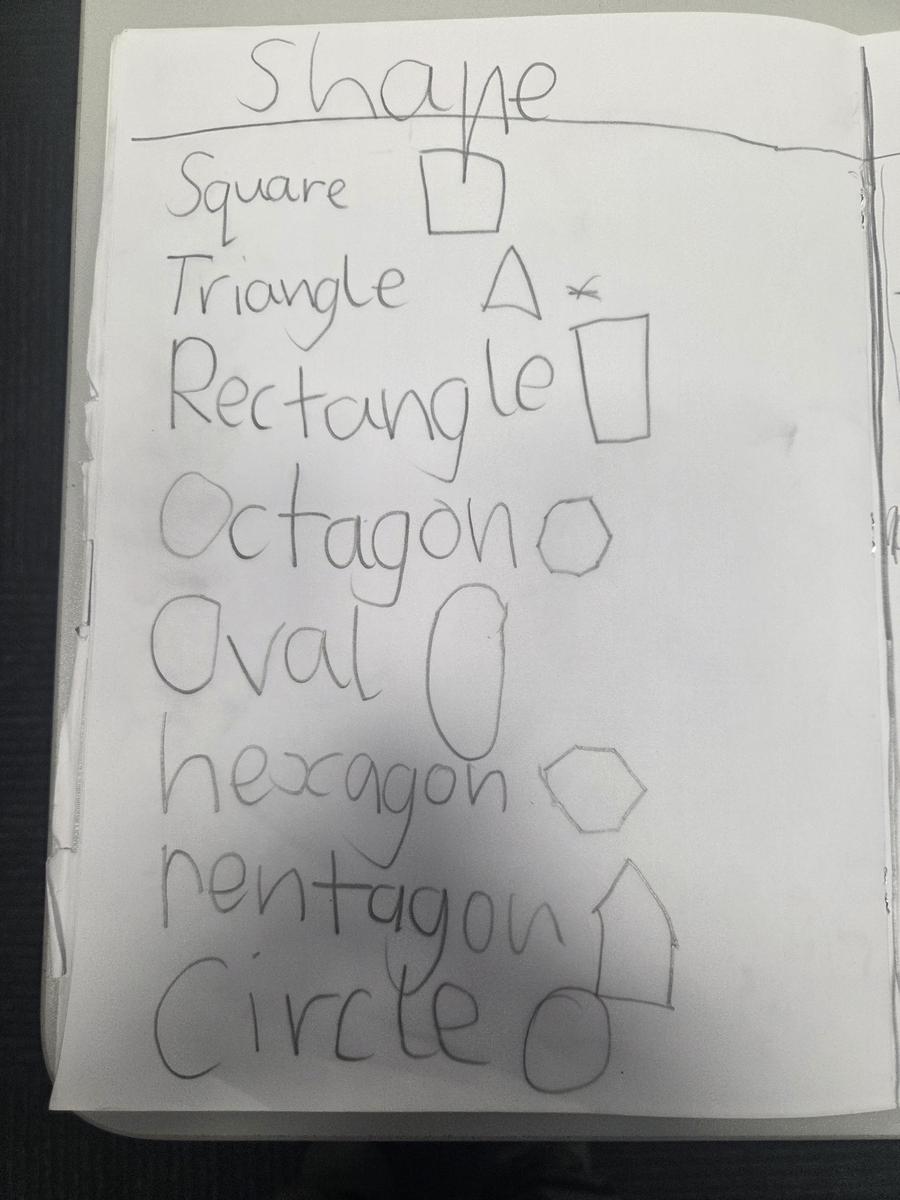 Shape
Square
Triangle
Rectangle
Octagon
Oval
hexagon
rentagon
Circle